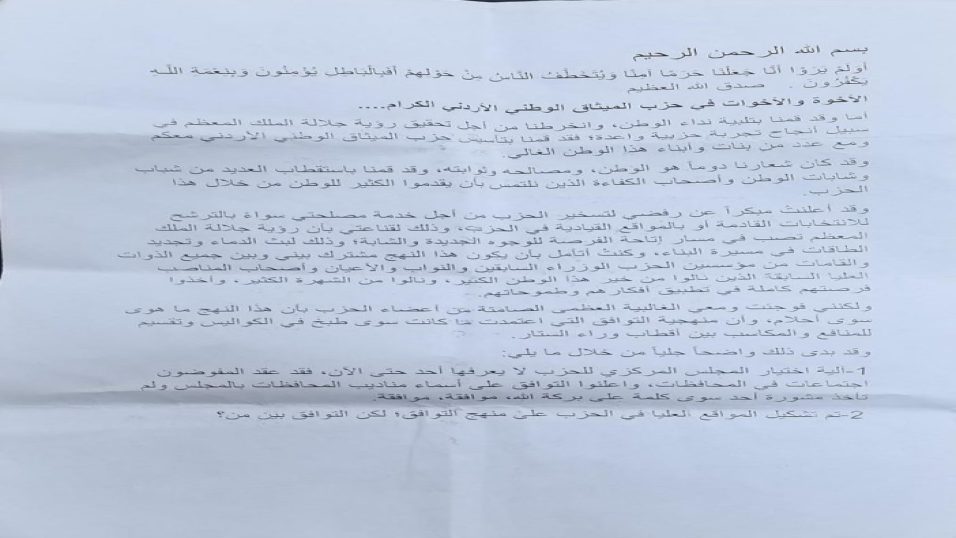 بسم الله الرحمن الرحيم
أَوَلَمْ يَرَوْا أَنَّا جَعَلْنَا حَرَمًا آمِنًا وَيُتَخَطَّفُ النَّاسُ مِنْ حَوْلِهِمْ أَفَبِالْبَاطِلِ يُؤْمِنُونَ وَبِنِعْمَةِ اللَّـهِ
يَكْفُرُونَ . صدق الله العظيم
الأخوة والأخوات في حزب الميثاق الوطني الأردني الكرام....
أما وقد قمنا بتلبية نداء الوطن، وانخرطنا من أجل تحقيق رؤية جلالة الملك المعظم في
سبيل أنجاح تجربة حزبية واعدة؛ فقد قمنا بتأسيس حزب الميثاق الوطني الأردني معكم
ومع عدد من بنات وأبناء هذا الوطن الغالي.
وقد كان شعارنا دوماً هو الوطن، ومصالحه وثوابته، وقد قمنا باستقطاب العديد من شباب
وشابات الوطن وأصحاب الكفاءة الذين نلتمس بأن يقدموا الكثير للوطن من خلال هذا
الحزب.
وقد أعلنتُ مبكراً عن رفضي لتسخير الحزب من أجل خدمة مصلحتي سواءً بالترشح
للانتخابات القادمة أو بالمواقع القيادية في الحزب، وذلك لقناعتي بأن رؤية جلالة الملك
المعظم تصب في مسار إتاحة الفرصة للوجوه الجديدة والشابة؛ وذلك لبث الدماء وتجديد
الطاقات في مسيرة البناء، وكنتُ أتأمل بأن يكون هذا النهج مشترك بيني وبين جميع الذوات
والقامات من مؤسسين الحزب الوزراء السابقين والنواب والأعيان وأصحاب المناصب
العليا السابقة الذين نالوا من خير هذا الوطن الكثير، ونالوا من الشهرة الكثير، وأخذوا
فرصتهم كاملة في تطبيق أفكارهم وطموحاتهم.
ولكنني فوجئت ومعي الغالبية العظمى الصامتة من أعضاء الحزب بأن هذا النهج ما هوى
سوى أحلام، وأن منهجية التوافق التي اعتمدت ما كانت سوى طبخ في الكواليس وتقسيم
للمنافع والمكاسب بين أقطاب وراء الستار.
وقد بدى ذلك واضحاً جلياً من خلال ما يلي:
1-آلية اختيار المجلس المركزي للحزب لا يعرفها أحد حتى الآن، فقد عقد المفوضون
اجتماعات في المحافظات، واعلنوا التوافق على أسماء مناديب المحافظات بالمجلس ولم
تأخذ مشورة أحد سوى كلمة على بركة الله، موافقة، موافقة.
2-تم تشكيل المواقع العليا في الحزب على منهج التوافق؛ لكن التوافق بين من؟